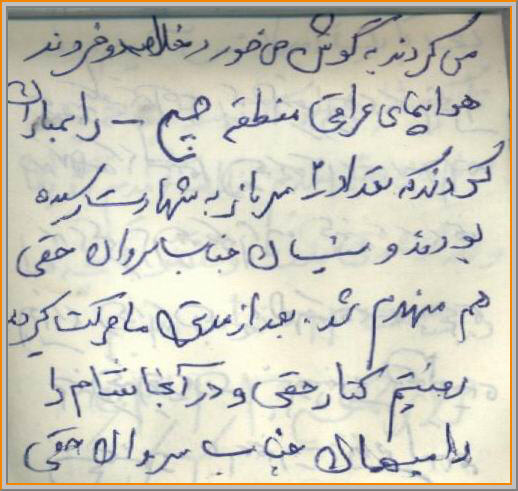 می کردند به گوش می خورد خلاصه دو فروند
هواپیمای عراقی منطقه – را بمباران
کردند که تعداد ۲ سرباز به شهادت رسیده
بودند و جناب سروان حقی
هم منهدم شد. بعد از مدتی ما حرکت کرده
رفتیم کنار حقی و در آنجا شام را
را میهمان جناب سروان حقی